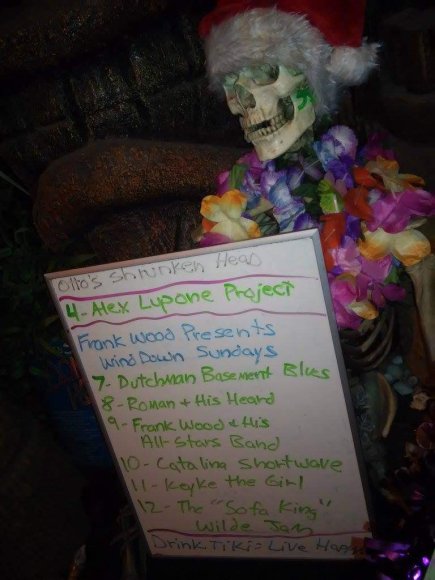 Otto's Shrunken Head
4 - Alex Lupone Project
Frank Wood Presents
Wind Down Sundays
7 - Dutchman Basement Blues
8 - Roman + His Heard
9 - Frank Wood & His
All-Stars Band
10 - Catalina Shortwave
11 - Keyke the Girl
12 - The "Sofa King"
Wilde Jam
Drink Tiki = Live Happ